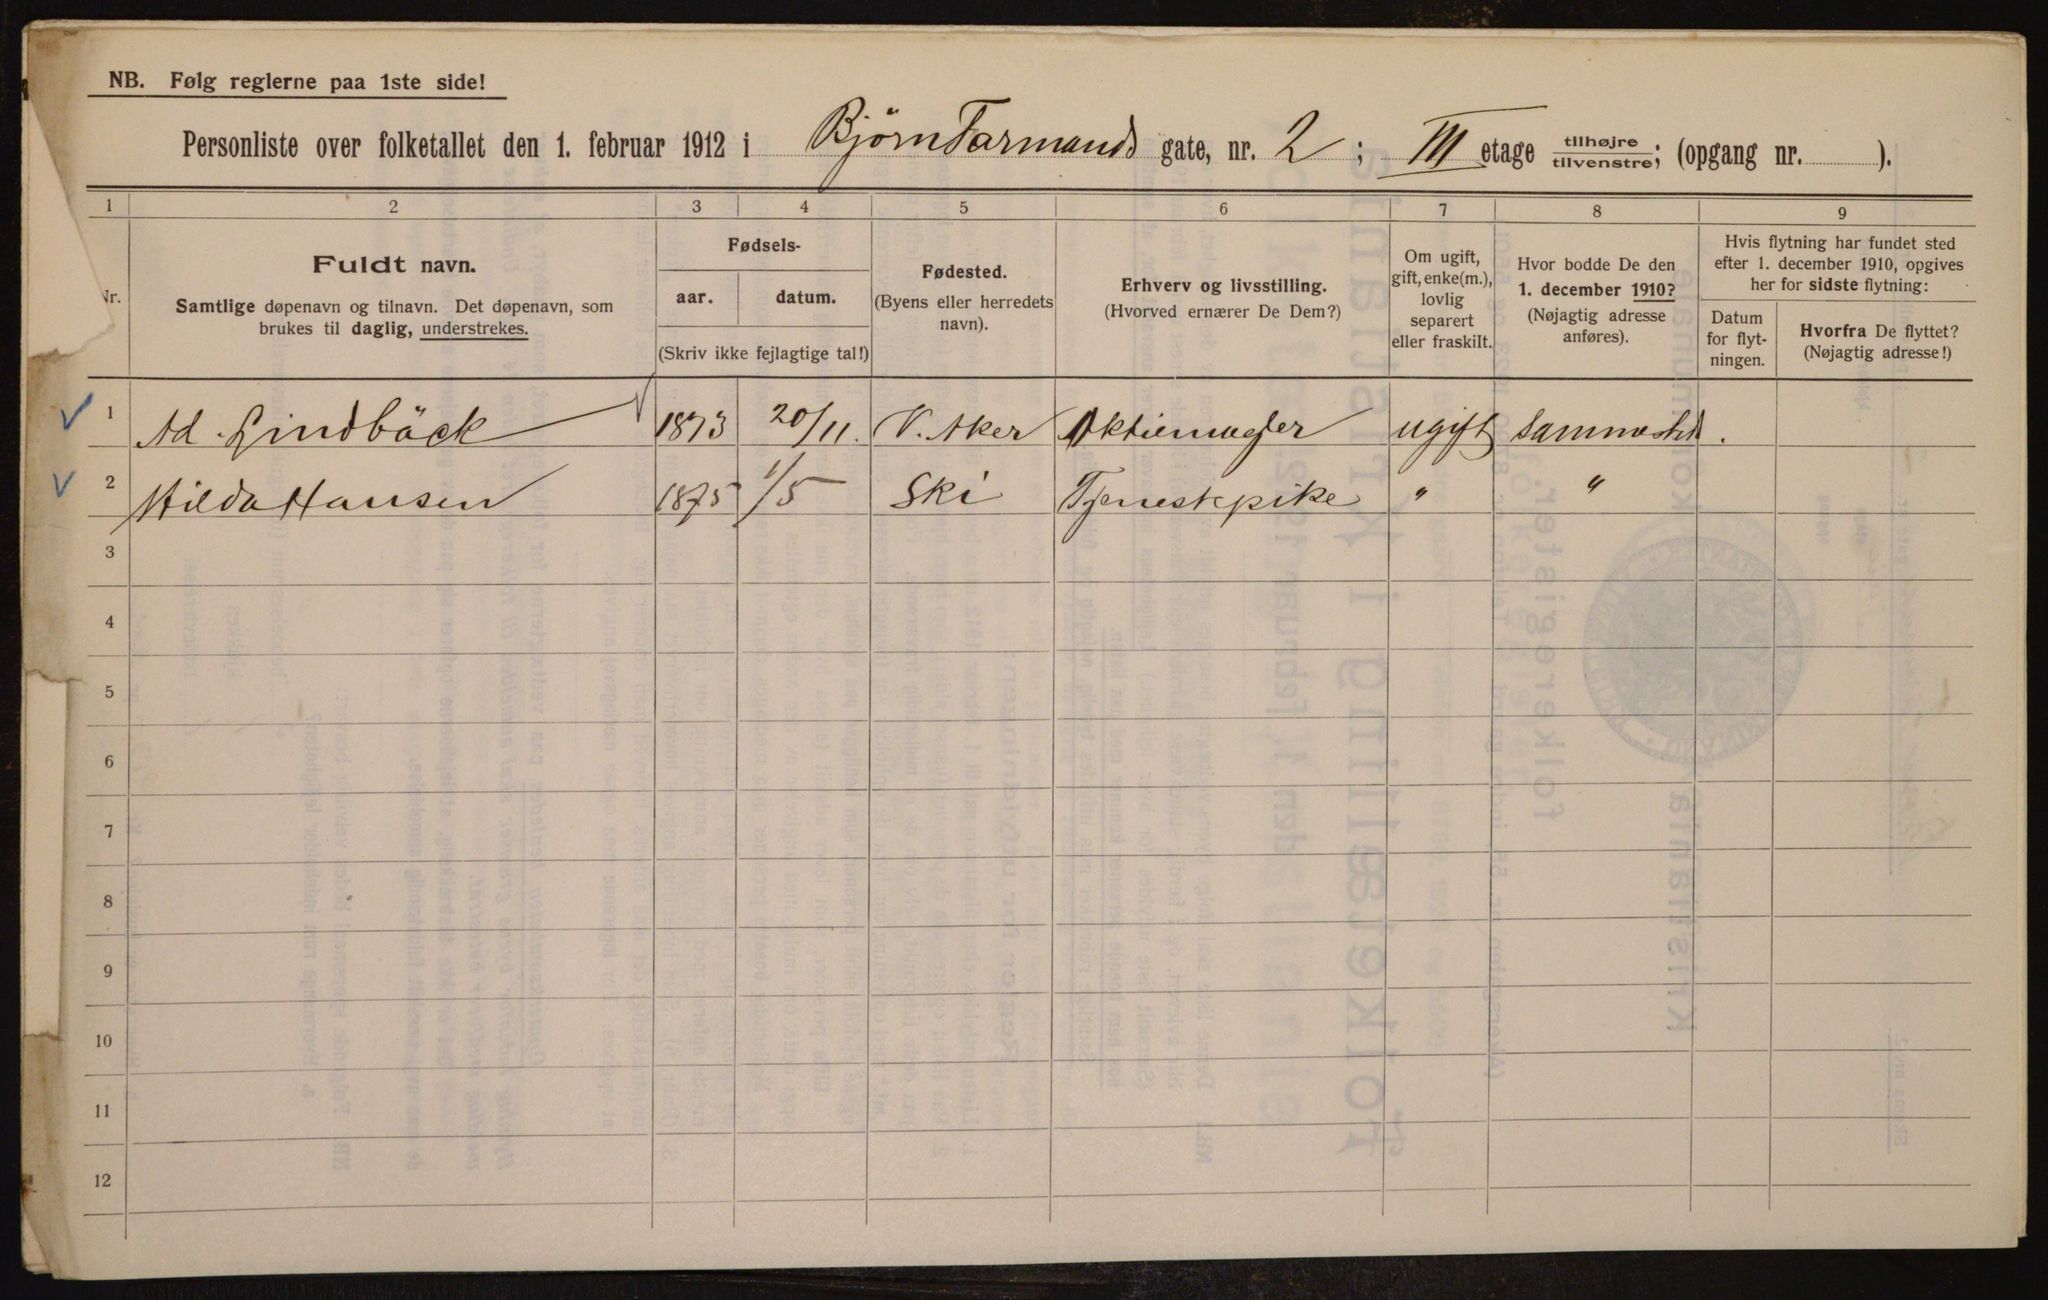 NB. Følg reglerne paa 1ste side!
Personliste over folketallet den 1. februar 1912 i Bjørn Farmands gate, nr. 2; III etage tilhøjre/tilvenstre; (opgang nr. ).
1 2 3 4 5 6 7 8 9
Nr.
Fuldt navn.
Samtlige døpenavn og tilnavn. Det døpenavn, som
brukes til daglig, understrekes.
Fødsels-
aar. datum.
(Skriv ikke fejlagtige tal!)
Fødested.
(Byens eller herredets
navn).
Erhverv og livsstilling.
(Hvorved ernærer De Dem?)
Om ugift,
gift, enke(m.),
lovlig
separert
eller fraskilt.
Hvor bodde De den
1. december 1910?
(Nøjagtig adresse
anføres).
Hvis flytning har fundet sted
efter 1. december 1910, opgives
her for sidste flytning:
Datum
for flyt-
ningen.
Hvorfra De flyttet?
(Nøjagtig adresse!)
1 Ad. Lindbäck 1873 20/11. V. Aker Aktiemægler ugift Sammested.
2 Hilda Hansen 1875 1/5 Ski Tjenestepike " "
3
4
5
6
7
8
9
10
11
12